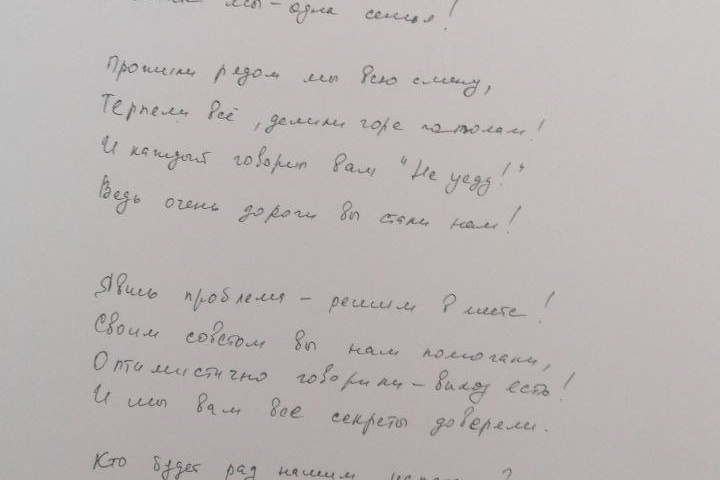 мы - одна семья!
Прожили рядом мы всю смену,
Терпели всё, делили горе пополам!
И каждый говорил вам "Не уеду!"
Ведь очень дороги вы стали нам!
Явись проблема - решим вместе!
Своим советом вы нам помогали,
Оптимистично говорили - выход есть!
И мы вам все секреты доверели.
Кто будет рад нашим